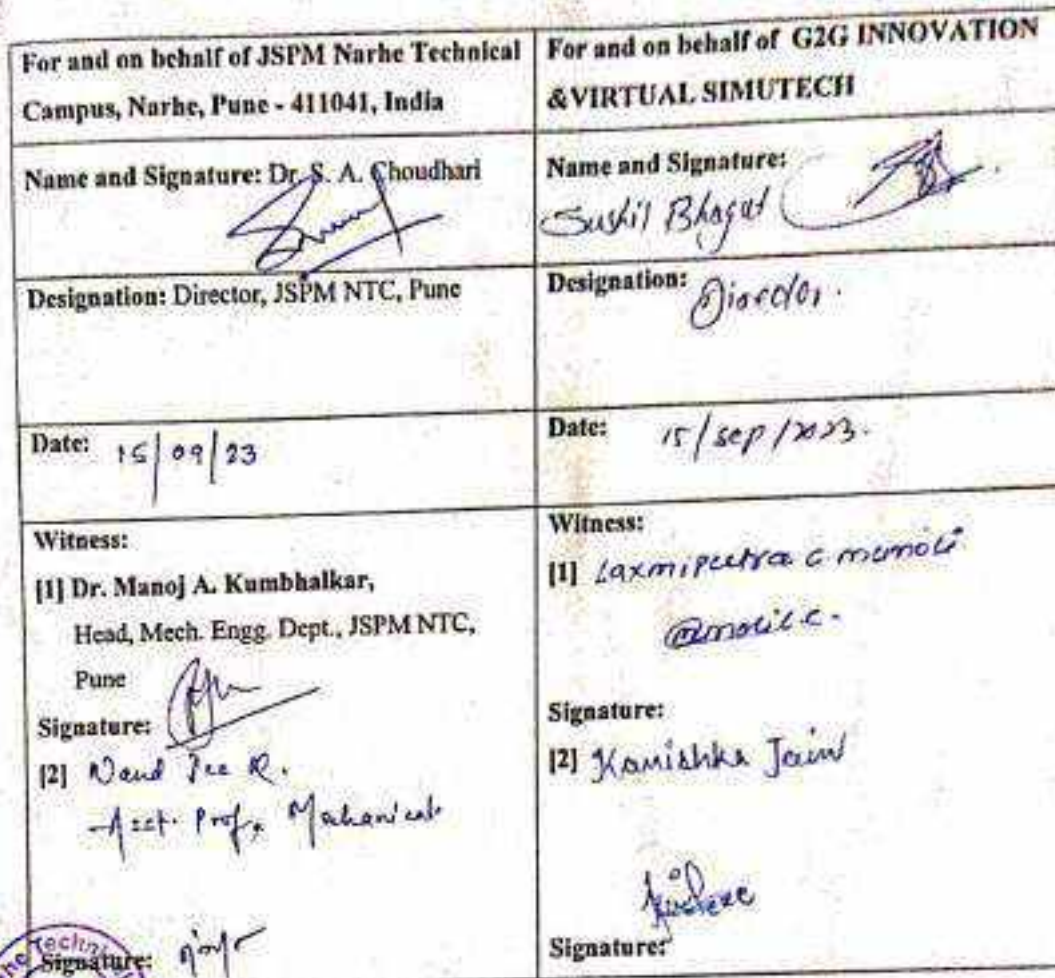 For and on behalf of JSPM Narhe Technical
Campus, Narhe, Pune - 411041, India
For and on behalf of G2G INNOVATION
&VIRTUAL SIMUTECH
Name and Signature: Dr. S. A. Choudhari
Name and Signature:
Sushil Bhagat
Designation: Director, JSPM NTC, Pune
Designation: Director.
Date: 15/09/23
Date: 15/sep/2023.
Witness:
[1] Dr. Manoj A. Kumbhalkar,
Head, Mech. Engg. Dept., JSPM NTC,
Pune
Signature:
[2]
Asst. Prof.
Signature:
Witness:
[1] Laxmiputra
Signature:
[2] Kanishka Jain
Signature: